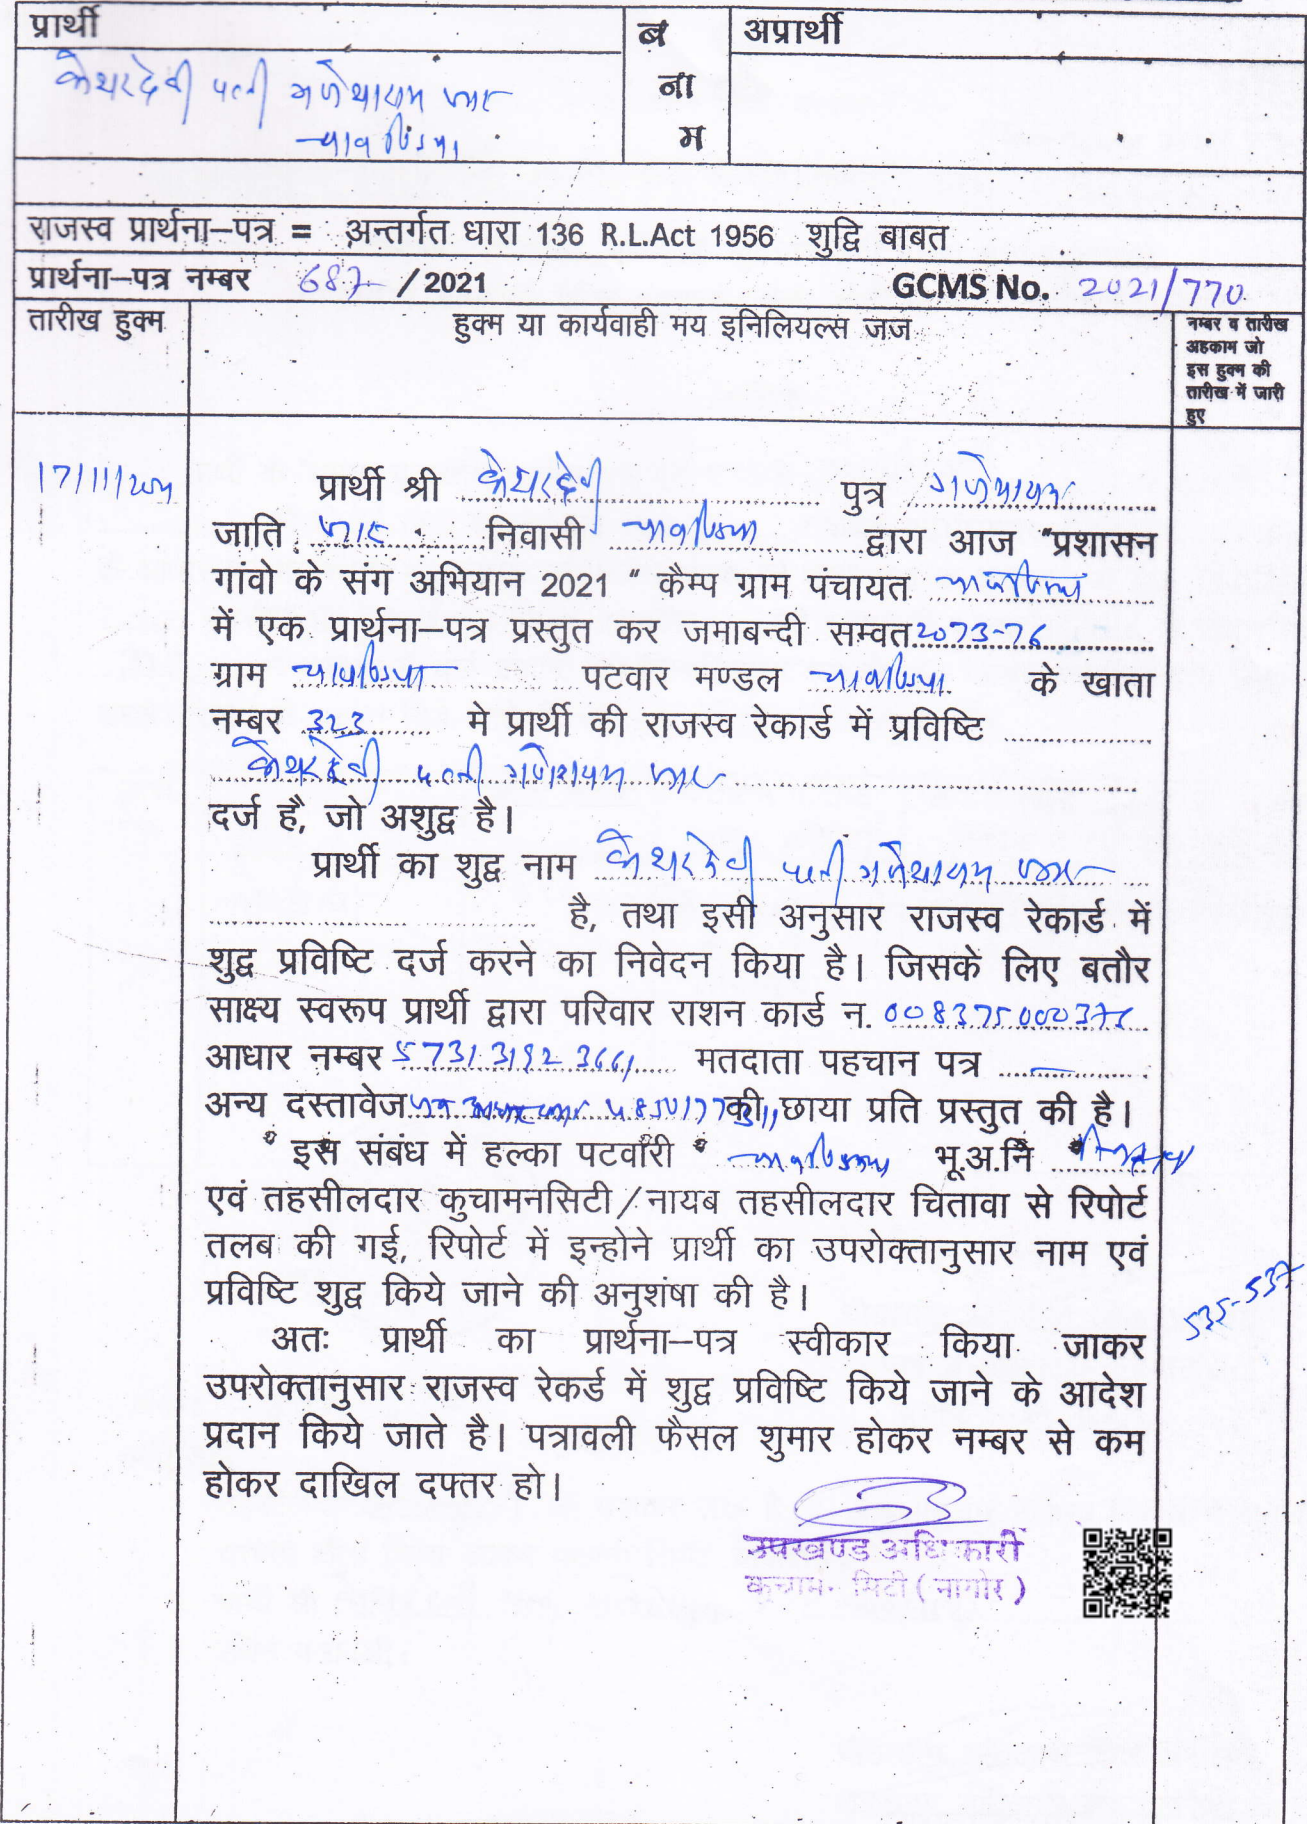 प्रार्थी
बनाम
अप्रार्थी
केशरदेवी पत्नी गणेशाराम जाट
चावण्डिया
राजस्व प्रार्थना–पत्र = अन्तर्गत धारा 136 R.L.Act 1956 शुद्वि बाबत
प्रार्थना–पत्र नम्बर 687 / 2021
GCMS No. 2021/770
तारीख हुक्म
हुक्म या कार्यवाही मय इनिलियल्स जज
नम्बर व तारीख
अहकाम जो
इस हुक्म की
तारीख में जारी
हुए
17/11/2021
प्रार्थी श्री केशरदेवी पुत्र गणेशाराम
जाति जाट निवासी चावण्डिया द्वारा आज "प्रशासन
गांवो के संग अभियान 2021 " कैम्प ग्राम पंचायत चावण्डिया
में एक प्रार्थना–पत्र प्रस्तुत कर जमाबन्दी सम्वत 2073-76
ग्राम चावण्डिया पटवार मण्डल चावण्डिया के खाता
नम्बर 323 मे प्रार्थी की राजस्व रेकार्ड में प्रविष्टि
केशरदेवी पत्नी गणेशराम जाट
दर्ज है, जो अशुद्व है।
प्रार्थी का शुद्व नाम केशरदेवी पत्नी गणेशाराम जाट
है, तथा इसी अनुसार राजस्व रेकार्ड में
शुद्व प्रविष्टि दर्ज करने का निवेदन किया है। जिसके लिए बतौर
साक्ष्य स्वरूप प्रार्थी द्वारा परिवार राशन कार्ड न.
आधार नम्बर 5731 3192 3661 मतदाता पहचान पत्र —
अन्य दस्तावेज की छाया प्रति प्रस्तुत की है।
इस संबंध में हल्का पटवारी चावण्डिया भू.अ.नि
एवं तहसीलदार कुचामनसिटी/नायब तहसीलदार चितावा से रिपोर्ट
तलब की गई, रिपोर्ट में इन्होने प्रार्थी का उपरोक्तानुसार नाम एवं
प्रविष्टि शुद्व किये जाने की अनुशंषा की है।
535-537
अतः प्रार्थी का प्रार्थना–पत्र स्वीकार किया जाकर
उपरोक्तानुसार राजस्व रेकर्ड में शुद्व प्रविष्टि किये जाने के आदेश
प्रदान किये जाते है। पत्रावली फैसल शुमार होकर नम्बर से कम
होकर दाखिल दफ्तर हो।
उपखण्ड अधिकारी
कुचामन सिटी ( नागोर )